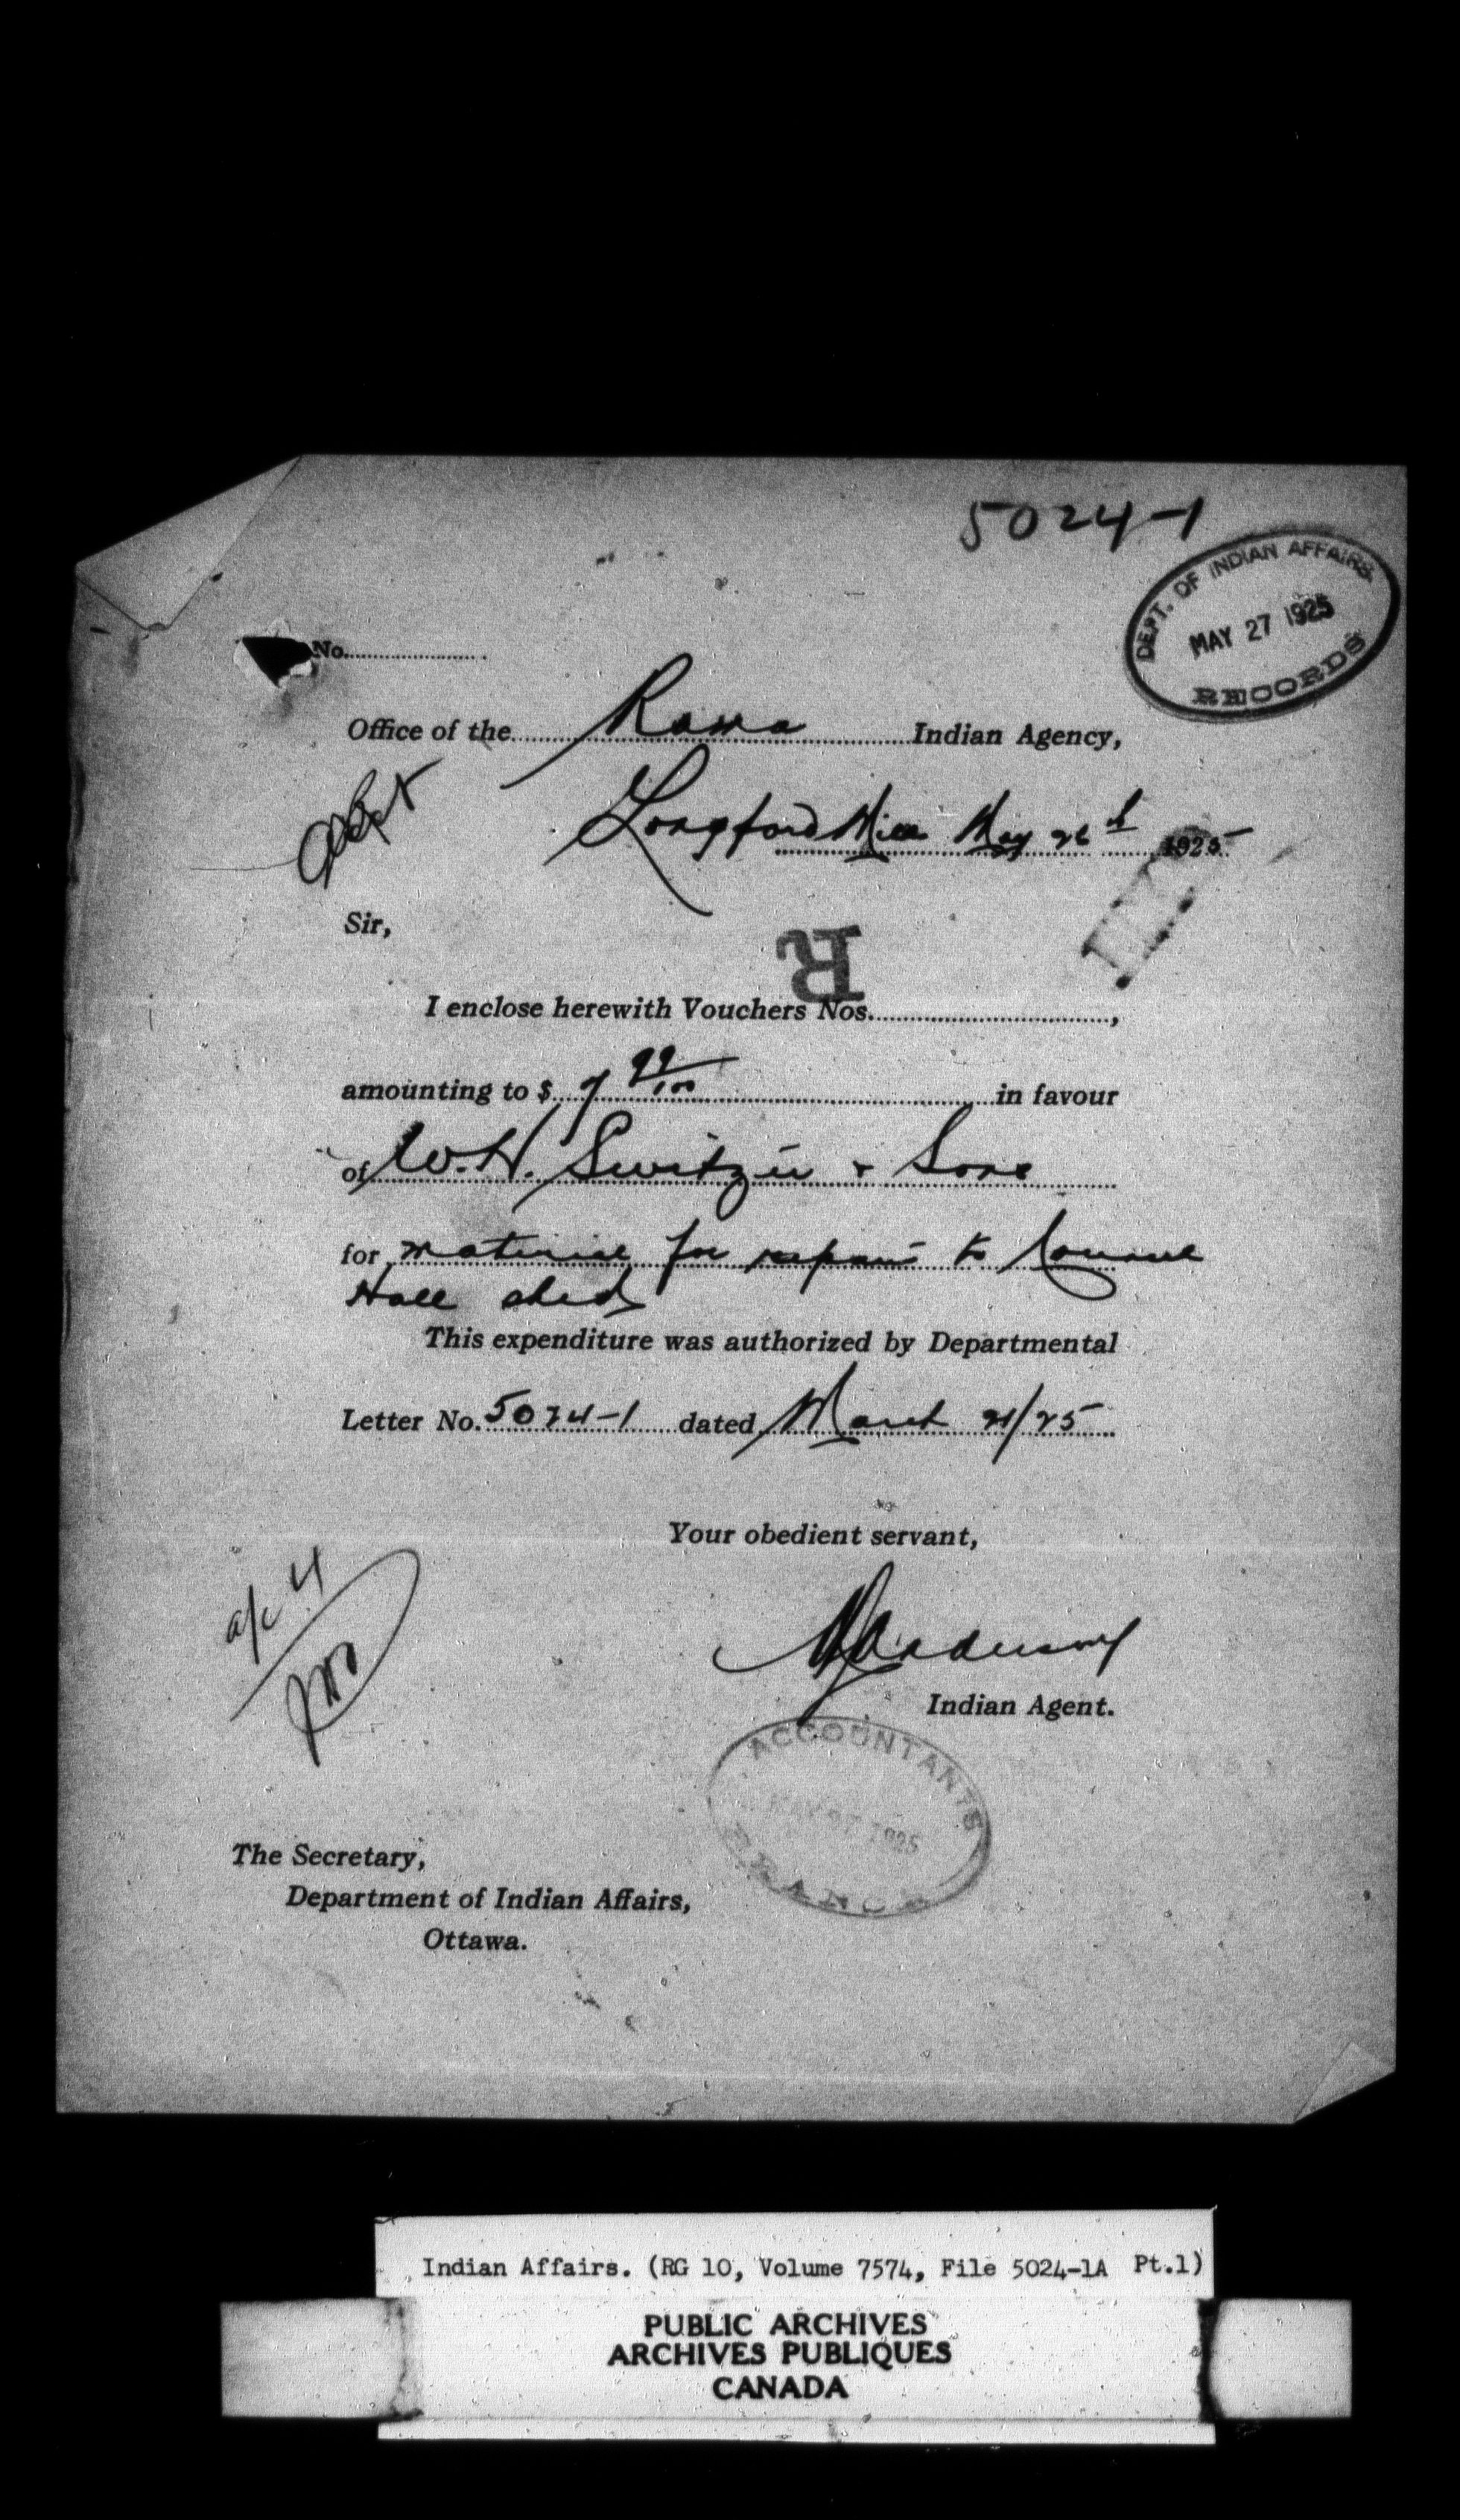 5024-1
DEPT. OF INDIAN AFFAIRS
MAY 27 1925
RECORDS
No.
Office of the Rama Indian Agency,
Longford Mills May 26th 1925
Sir,
R
I enclose herewith Vouchers Nos. ,
amounting to $ 7 99/100 in favour
of W.H. Switzer + Sons
for material for repairs to Council
Hall shed
This expenditure was authorized by Departmental
Letter No. 5024-1 dated March 21/25
Your obedient servant,
Indian Agent.
a/c 4
ACCOUNTANTS
MAY 27 1925
BRANCH
The Secretary,
Department of Indian Affairs,
Ottawa.
Indian Affairs. (RG 10, Volume 7574, File 5024-1A Pt.1)
PUBLIC ARCHIVES
ARCHIVES PUBLIQUES
CANADA